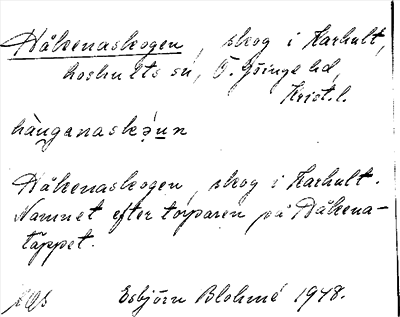 Håkenaskogen, skog i Harhult,
Loshults sn, Ö. Göinge hd,
Krist. l.
hàu̯ganaskɔ́u̯n
Håkenaskogen, skog i Harhult.
Namnet efter torparen på Håkena-
täppet.
Esbjörn Blohmé 1948.